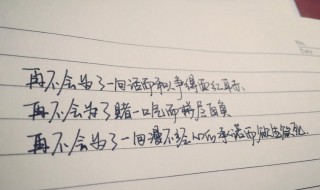 再不会为了一句话而和人争得面红耳赤.
再不会为了赌一口气而
再不会为了一句漫不经心的承诺而